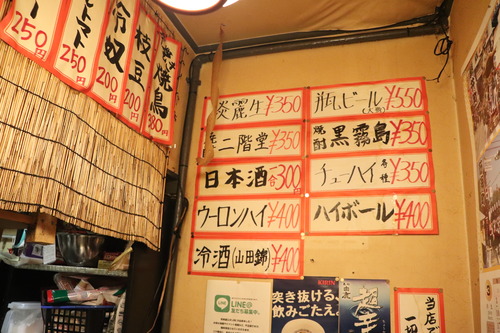 トマト
250円
250円
冷奴
200円
枝豆
200円
焼鳥
380円
淡麗生 ¥350
瓶ビール(大瓶) ¥550
麦 二階堂 ¥350
焼酎 黒霧島 ¥350
日本酒 一合 300円
チューハイ 各種 ¥350
ウーロンハイ ¥400
ハイボール ¥400
冷酒(山田錦) ¥400
LINE
LINE@
友だち募集中。
KIRIN
突き抜ける、
飲みごたえ。
当店